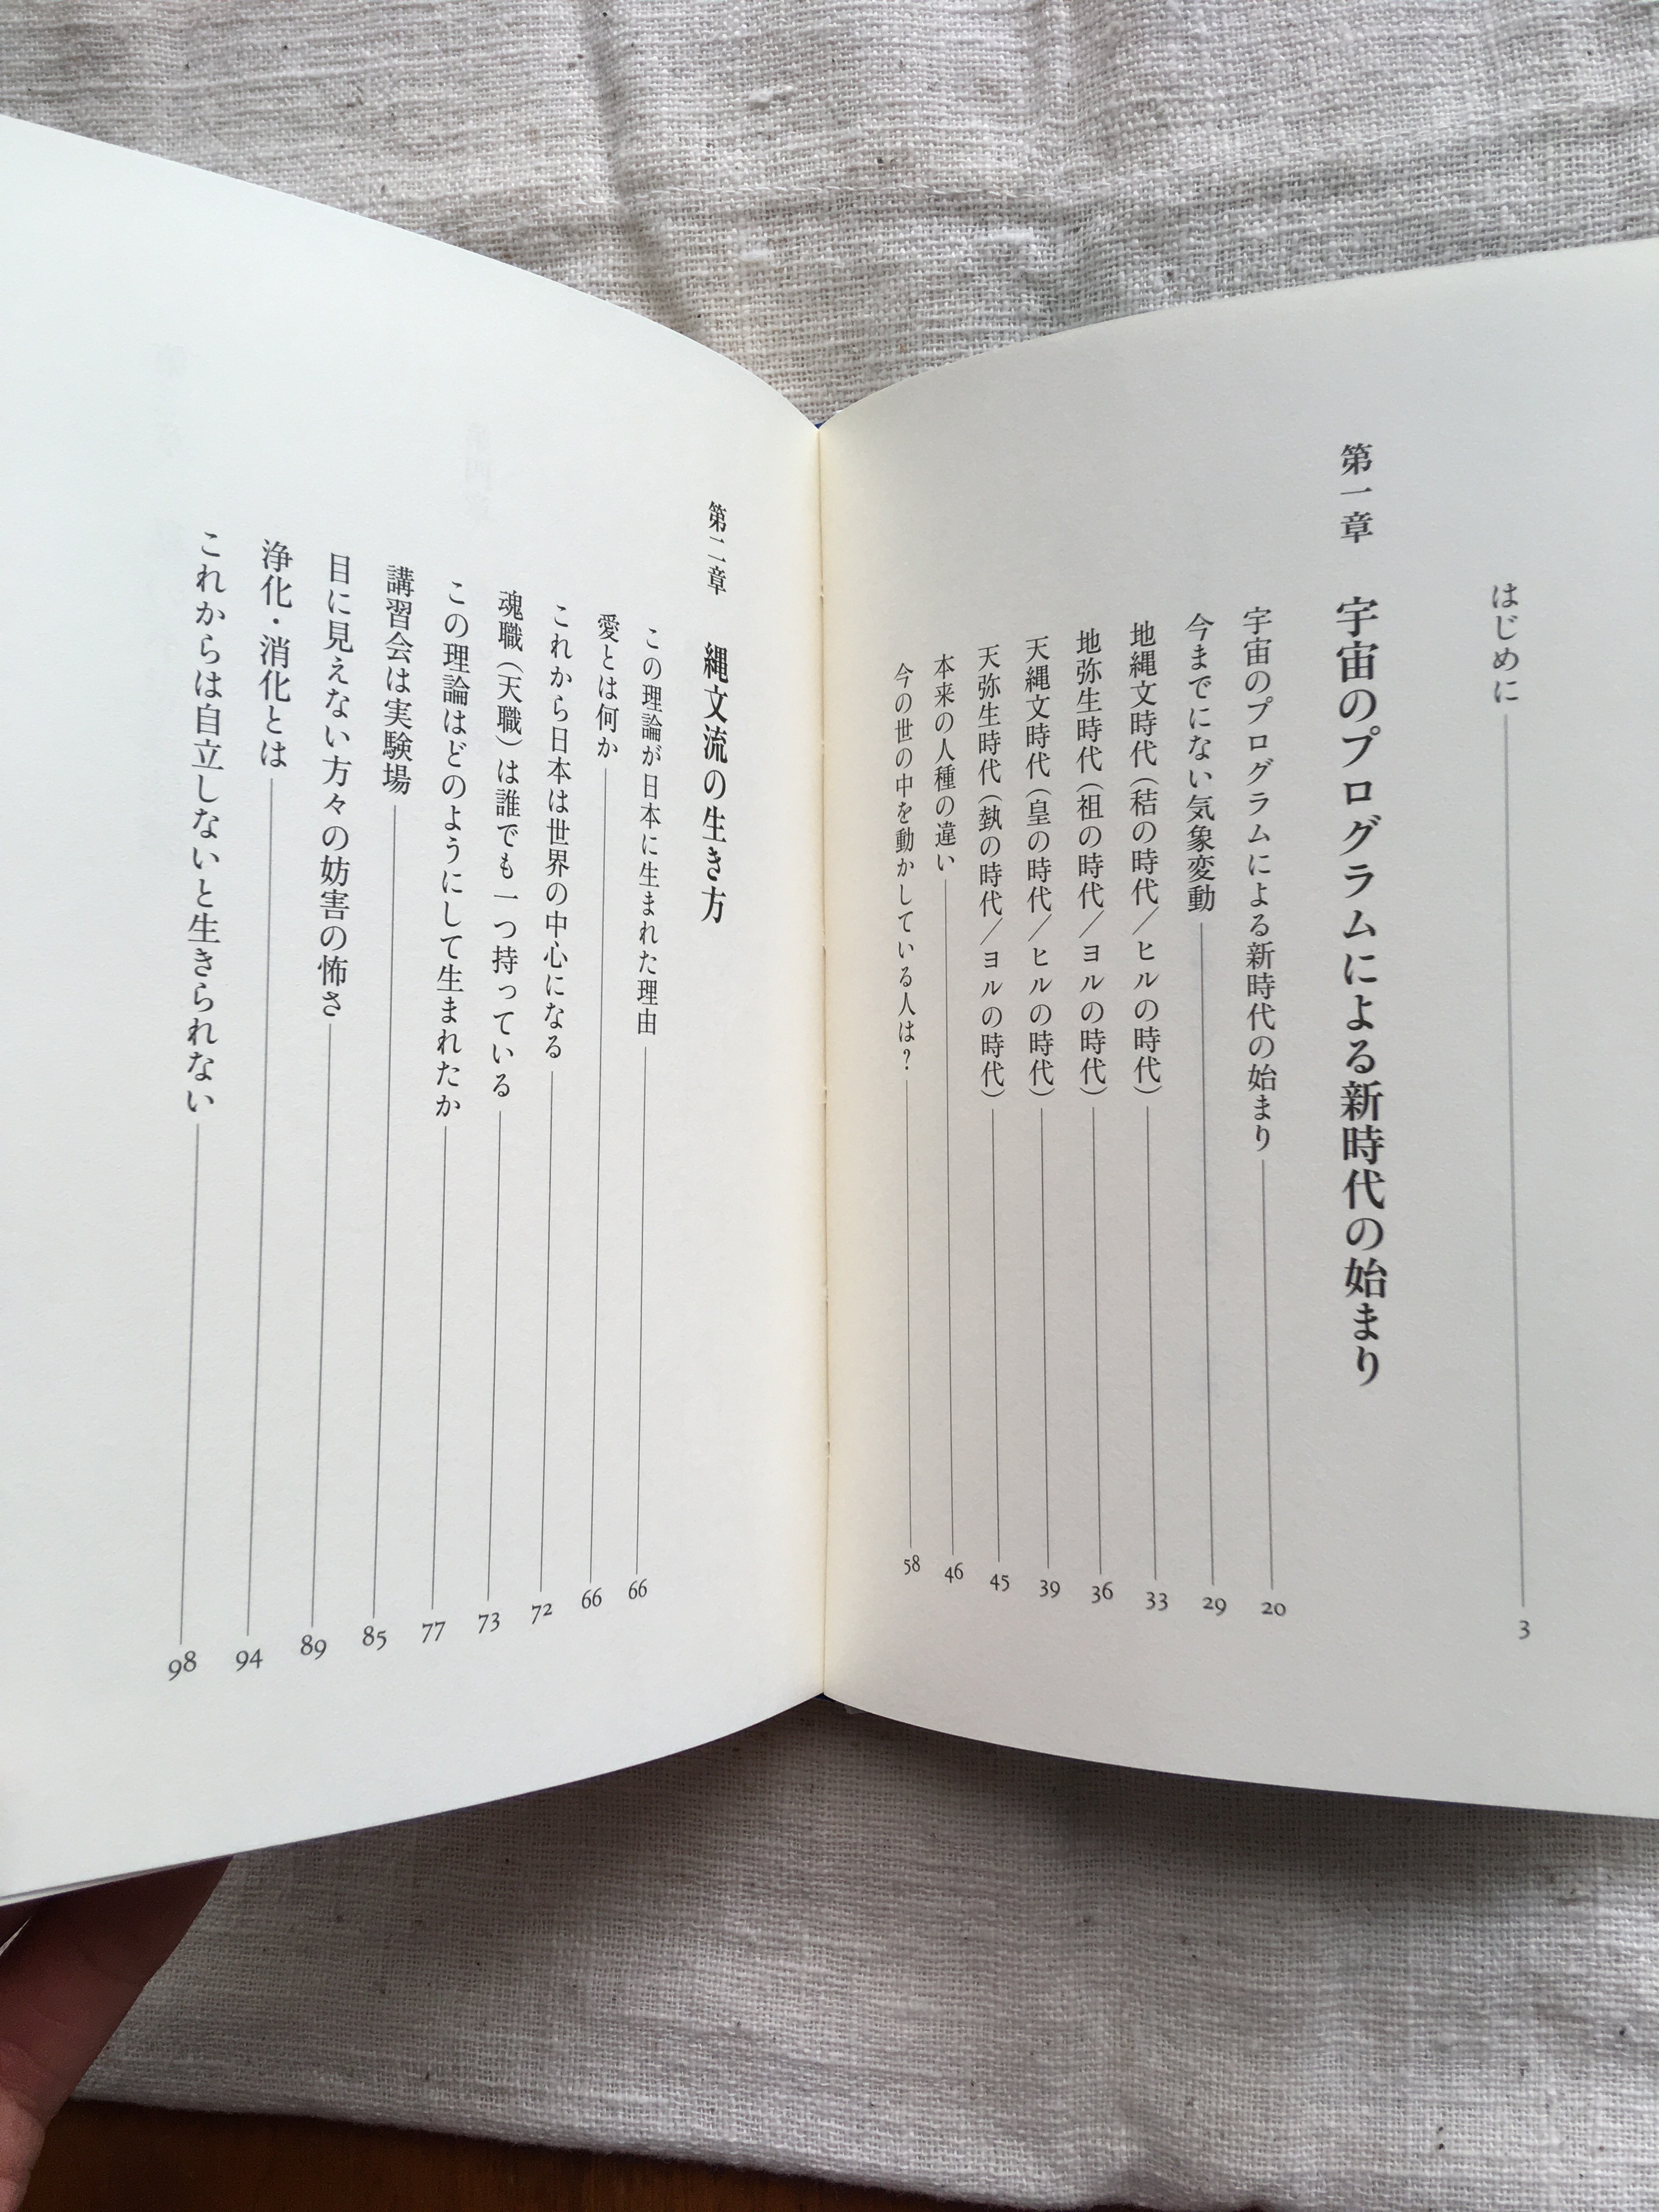 はじめに 3
第一章 宇宙のプログラムによる新時代の始まり
宇宙のプログラムによる新時代の始まり 20
今までにない気象変動 29
地縄文時代（秸の時代／ヒルの時代） 33
地弥生時代（祖の時代／ヨルの時代） 36
天縄文時代（皇の時代／ヒルの時代） 39
天弥生時代（埶の時代／ヨルの時代） 45
本来の人種の違い 46
今の世の中を動かしている人は？ 58
第二章 縄文流の生き方
この理論が日本に生まれた理由 66
愛とは何か 66
これから日本は世界の中心になる 72
魂職（天職）は誰でも一つ持っている 73
この理論はどのようにして生まれたか 77
講習会は実験場 85
目に見えない方々の妨害の怖さ 89
浄化・消化とは 94
これからは自立しないと生きられない 98